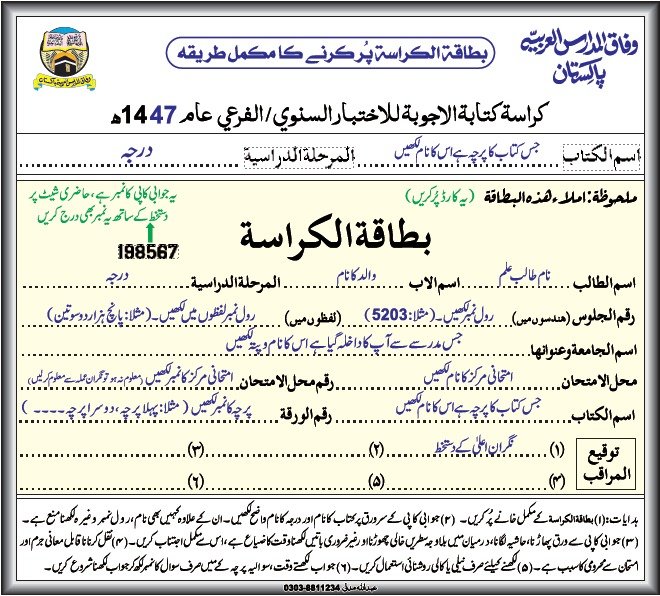 وفاق المدارس العربیہ پاکستان
بطاقۃ الکراسۃ پُر کرنے کا مکمل طریقہ
کراسة کتابة الاجوبة للاختبار السنوي/الفرعي عام 1447ھ
اسم الكتاب جس کتاب کا پرچہ ہے اس کا نام لکھیں المرحلة الدراسية درجہ
ملحوظة: املاء هذه البطاقة (یہ کارڈ پُر کریں)
یہ جوابی کاپی کا نمبر ہے، حاضری شیٹ پر
دستخط کے ساتھ یہ نمبر بھی درج کریں
198567
بطاقة الكراسة
اسم الطالب نام طالب علم اسم الاب والد کا نام المرحلة الدراسية درجہ
رقم الجلوس (ہندسوں میں) رول نمبر لکھیں۔ (مثلا: 5203) (لفظوں میں) رول نمبر لفظوں میں لکھیں۔ (مثلا: پانچ ہزار دو سو تین)
اسم الجامعة وعنوانها جس مدرسے سے آپ کا داخلہ گیا ہے اس کا نام و پتہ لکھیں
محل الامتحان امتحانی مرکز کا نام لکھیں رقم محل الامتحان امتحانی مرکز کا نمبر لکھیں (معلوم نہ ہو تو نگران عملہ سے معلوم کرلیں)
اسم الكتاب جس کتاب کا پرچہ ہے اس کا نام لکھیں رقم الورقة پرچہ کا نمبر لکھیں (مثلا: پہلا پرچہ، دوسرا پرچہ ۔۔۔۔)
توقيع المراقب
(۱) نگران اعلیٰ کے دستخط (۲) (۳)
(۴) (۵) (۶)
ہدایات: (۱) بطاقۃ الکراسۃ کے مکمل خانے پُر کریں۔ (۲) جوابی کاپی کے سرورق پر کتاب کا نام اور درجہ کا نام واضح لکھیں۔ ان کے علاوہ کہیں بھی نام، رول نمبر وغیرہ لکھنا منع ہے۔
(۳) جوابی کاپی سے ورق پھاڑنا، حاشیہ لگانا، درمیان میں بلاوجہ سطریں خالی چھوڑنا اور غیر ضروری باتیں لکھنا وقت کا ضیاع ہے، اس سے مکمل اجتناب کریں۔ (۴) نقل کرنا کرانا قابل معافی جرم اور
امتحان سے محرومی کا سبب ہے۔ (۵) لکھنے کیلئے صرف نیلی یا کالی روشنائی استعمال کریں۔ (۶) جواب لکھتے وقت، سوالیہ پرچہ کے میں صرف سوال کا نمبر لکھ کر جواب لکھنا شروع کریں۔
0303-8811234